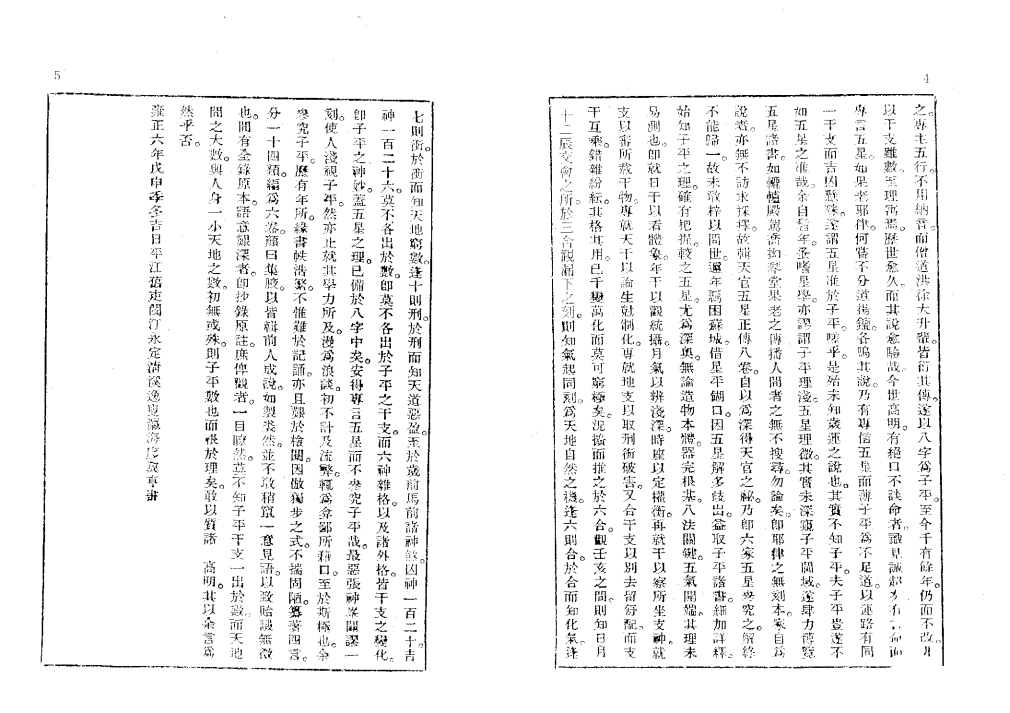 4
之。專主五行。不用納音。而僧道洪徐大升輩。皆衍其傳。遂以八字爲子平。至今千有餘年。仍而不改。
以干支雖數。至理寓焉。歷世愈久。而其說愈驗哉。今世高明。有絕口不談命者。識見誠超
專言五星。如果老耶律。何嘗不分道揚鑣。各鳴其說。乃有專信五星而薄子平。爲不足道。以運路有同
一干支而吉凶懸殊。遂謂五星准於子平。嗟乎。是殆未知歲運之說也。其實不知子平。夫子平豈遂不
如五星之准哉。余自髫年。蚤嗜星學。亦謬謂子平理淺。五星理微。其實未深窺子平閫域。遂肆力博覽
五星諸書。如轆轤嚴駕喬拗琴堂果老之傳播人間者。之無不搜尋。勿論矣。卽耶律之無刻本。家自爲
說者。亦無不訪求採釋。故輯天官五星正傳八卷。自以爲深得天官之祕。乃卽六家五星參究之。解終
不能歸一。故未敢梓以問世。邇年羈困蘇城。借星平餬口。因五星解多歧出。益取子平諸書。細加詳釋。
始知子平之理。確有把握。較之五星。尤爲深奧。無論造物本體。器完根基。八法關鍵。五氣開端。其理未
易測也。卽就日干以看體象。年干以觀統攝。月氣以辨淺深。時座以定權衡。再就干以察所坐支神。就
支以審所載干物。專就天干以論生尅制化。專就地支以取刑衝破害。又合干支以別去留舒配。而支
干互乘。錯雜紛紜。其格其用。已千變萬化而莫可窮極矣。況擴而推之於六合。觀壬亥之間。則知日月
十二辰交會之所。於三合觀漏下之刻。則知氣起同刻。爲天地自然之機。逢六則合。於合而知化氣。逢
5
七則衝。於衝而知天地窮數。逢十則刑。於刑而知天道惡盈。至於歲前馬前諸神煞。因神一百二十。吉
神一百二十六。莫不各出於數。卽莫不各出於子平之干支。而六神雜格。以及諸外格。皆干支之變化。
卽子平之神妙。蓋五星之理。已備於八字中矣。安得專言五星而不參究子平哉。最惡張神峯闢謬一
刻。使人淺視子平。然亦止就其學力所及。漫爲浪談。初不計及流弊。輒爲弇鄙所藉口。至於斯極也。余
參究子平。歷有年所。緣書帙浩繁。不惟難於記誦。亦且艱於檢閱。因倣獨步之式。不揣固陋。纂著四言。
分一十四類。編爲六卷。顏曰集腋。以皆輯前人成說。如製裘然。並不敢稍竄一意見語。以致貽譏無徵
也。間有全錄原本。語意眞深者。卽抄錄原註。庶俾觀者。一目暸然。莫不知子平干支一出於數。而天地
間之大數。與人身一小天地之數。初無或殊。則子平數也而根於理矣。敢以質諸　高明。其以余言爲
然乎否。
雍正六年戊申季冬吉日平江舊吏閩汀永定清溪逸叟瀛海廖冀亨書